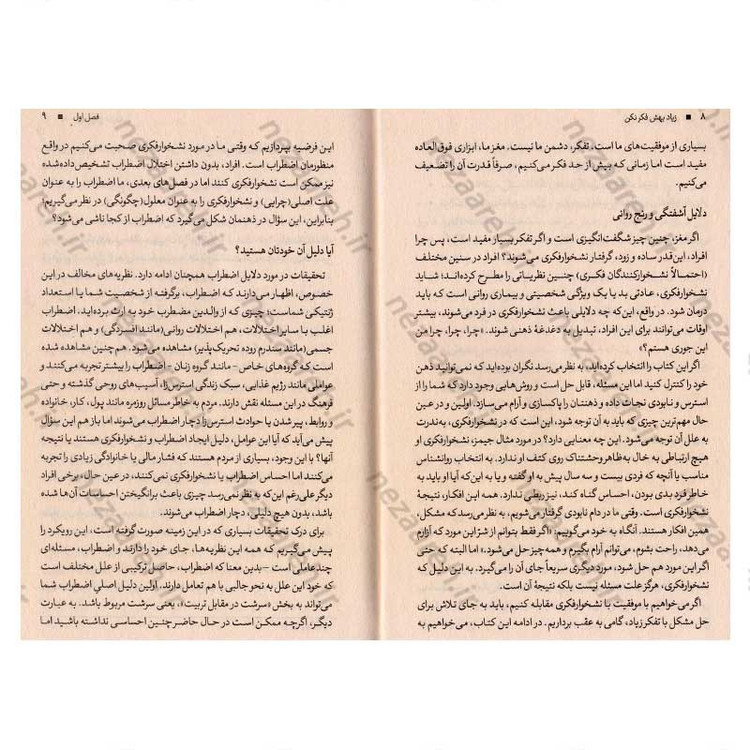 ۸ ■ زیاد بهش فکر نکن
بسیاری از موفقیت‌های ما است. تفکر، دشمن ما نیست. مغز ما، ابزاری فوق‌العاده
مفید است اما زمانی که بیش از حد فکر می‌کنیم، صرفاً قدرت آن را تضعیف
می‌کنیم.
دلایل آشفتگی و رنج روانی
اگر مغز، چنین چیز شگفت‌انگیزی است و اگر تفکر بسیار مفید است، پس چرا
افراد، این‌قدر ساده و زود، گرفتار نشخوارفکری می‌شوند؟ افراد در سنین مختلف
(احتمالاً نشخوارکنندگان فکری) چنین نظریاتی را مطرح کرده‌اند؛ شاید
نشخوارفکری، عادتی بد یا یک ویژگی شخصیتی و بیماری روانی است که باید
درمان شود. در واقع، این‌که چه دلایلی باعث نشخوارفکری در فرد می‌شوند، بیشتر
اوقات می‌توانند برای این افراد، تبدیل به دغدغهٔ ذهنی شوند. «چرا، چرا، چرا من
این جوری هستم؟»
اگر این کتاب را انتخاب کرده‌اید، به نظر می‌رسد نگران بوده‌اید که نمی‌توانید ذهن
خود را کنترل کنید اما این مسئله، قابل حل است و روش‌هایی وجود دارد که شما را از
استرس و نابودی نجات داده و ذهنتان را پاکسازی و آرام می‌سازد. اولین و در عین
حال مهم‌ترین چیزی که باید به آن توجه شود، این است که در نشخوارفکری، به‌ندرت
به علل آن توجه می‌شود. این چه معنایی دارد؟ در مورد مثال جیمز، نشخوارفکری او
هیچ ارتباطی به خال به‌ظاهر وحشتناک روی کتف او ندارد. به انتخاب روانشناس
مناسب یا آنچه که فردی بیست و سه سال پیش به او گفته و یا به این‌که آیا او باید به
خاطر فرد بدی بودن، احساس گناه کند، نیز ربطی ندارد. همه این افکار، نتیجهٔ
نشخوارفکری است. وقتی ما در دام نابودی گرفتار می‌شویم، به نظر می‌رسد که مشکل،
همین افکار هستند. آنگاه به خود می‌گوییم: «اگر فقط بتوانم از شرّ این مورد که آزارم
می‌دهد، راحت بشوم، می‌توانم آرام بگیرم و همه چیز حل می‌شود.» اما البته که حتی
اگر این مورد هم حل شود، مورد دیگری سریعاً جای آن را می‌گیرد. به این دلیل که
نشخوارفکری، هرگز علت مسئله نیست بلکه نتیجهٔ آن است.
اگر می‌خواهیم با موفقیت با نشخوارفکری مقابله کنیم، باید به جای تلاش برای
حل مشکل با تفکر زیاد، گامی به عقب برداریم. در ادامه این کتاب، می‌خواهیم به
فصل اول ■ ۹
این فرضیه بپردازیم که وقتی ما در مورد نشخوارفکری صحبت می‌کنیم در واقع
منظورمان اضطراب است. افراد، بدون داشتن اختلال اضطراب تشخیص‌داده‌شده
نیز ممکن است نشخوارفکری کنند اما در فصل‌های بعدی، ما اضطراب را به عنوان
علت اصلی(چرایی) و نشخوارفکری را به عنوان معلول(چگونگی) در نظر می‌گیریم!
بنابراین، این سؤال در ذهنمان شکل می‌گیرد که اضطراب از کجا ناشی می‌شود؟
آیا دلیل آن خودتان هستید؟
تحقیقات در مورد دلایل اضطراب همچنان ادامه دارد. نظریه‌های مخالف در این
خصوص، اظهار می‌دارند که اضطراب، برگرفته از شخصیت شما یا استعداد
ژنتیکی شماست؛ چیزی که از والدین مضطرب خود به ارث برده‌اید. اضطراب
اغلب با سایر اختلالات، هم اختلالات روانی(مانند افسردگی) و هم اختلالات
جسمی(مانند سندرم روده تحریک‌پذیر) مشاهده می‌شود. هم چنین مشاهده شده
است که گروه‌های خاص - مانند گروه زنان - اضطراب را بیشتر تجربه می‌کنند و
عواملی مانند رژیم غذایی، سبک زندگی استرس‌زا، آسیب‌های روحی گذشته و حتی
فرهنگ در این مسئله نقش دارند. مردم به خاطر مسائل روزمره مانند پول، کار، خانواده
و روابط، پیر شدن یا حوادث استرس‌زا دچار اضطراب می‌شوند اما باز هم این سؤال
پیش می‌آید که آیا این عوامل، دلیل ایجاد اضطراب و نشخوارفکری هستند یا نتیجه
آنها؟ با این وجود، بسیاری از مردم هستند که فشار مالی یا خانوادگی زیادی را تجربه
می‌کنند اما احساس اضطراب یا نشخوارفکری نمی‌کنند، در عین حال، برخی افراد
دیگر علی‌رغم این‌که به نظر نمی‌رسد چیزی باعث برانگیختن احساسات آن‌ها شده
باشد، بدون هیچ دلیلی، دچار اضطراب می‌شوند.
برای درک تحقیقات بسیاری که در این زمینه صورت گرفته است، این رویکرد را
پیش می‌گیریم که همه این نظریه‌ها، جای خود را دارند و اضطراب، مسئله‌ای
چندعاملی است - بدین معنا که اضطراب، حاصل ترکیبی از علل مختلف است
که خود این علل به نحو جالبی با هم تعامل دارند. اولین دلیل اصلی اضطراب شما
می‌تواند به بخش «سرشت در مقابل تربیت»، یعنی سرشت مربوط باشد. به عبارت
دیگر، اگرچه ممکن است در حال حاضر چنین احساسی نداشته باشید اما
nezaareh.ir